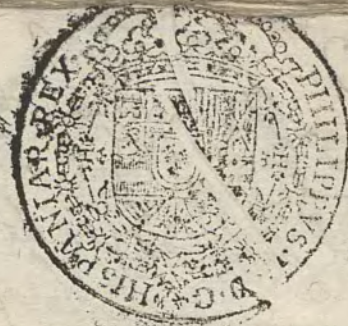 PHILIPPVS D. G. HISPANIAR. REX